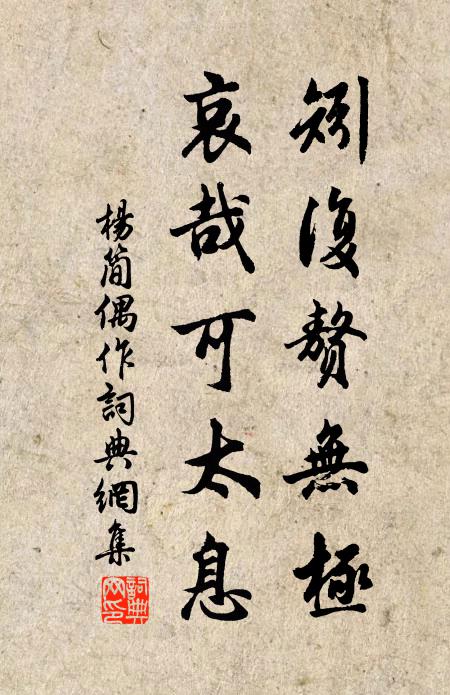 矧復贅無極
哀哉可太息
楊簡偶作詞典網集
詞典
网印